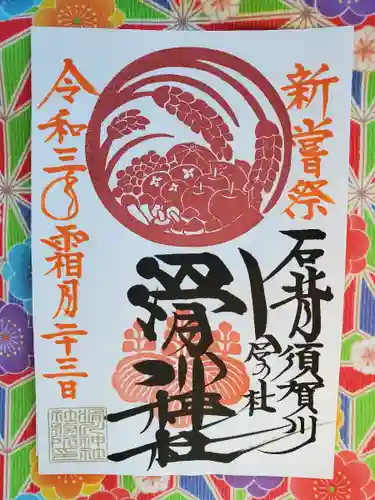 新嘗祭
石背須賀川
滑川神社
令和三年霜月二十三日